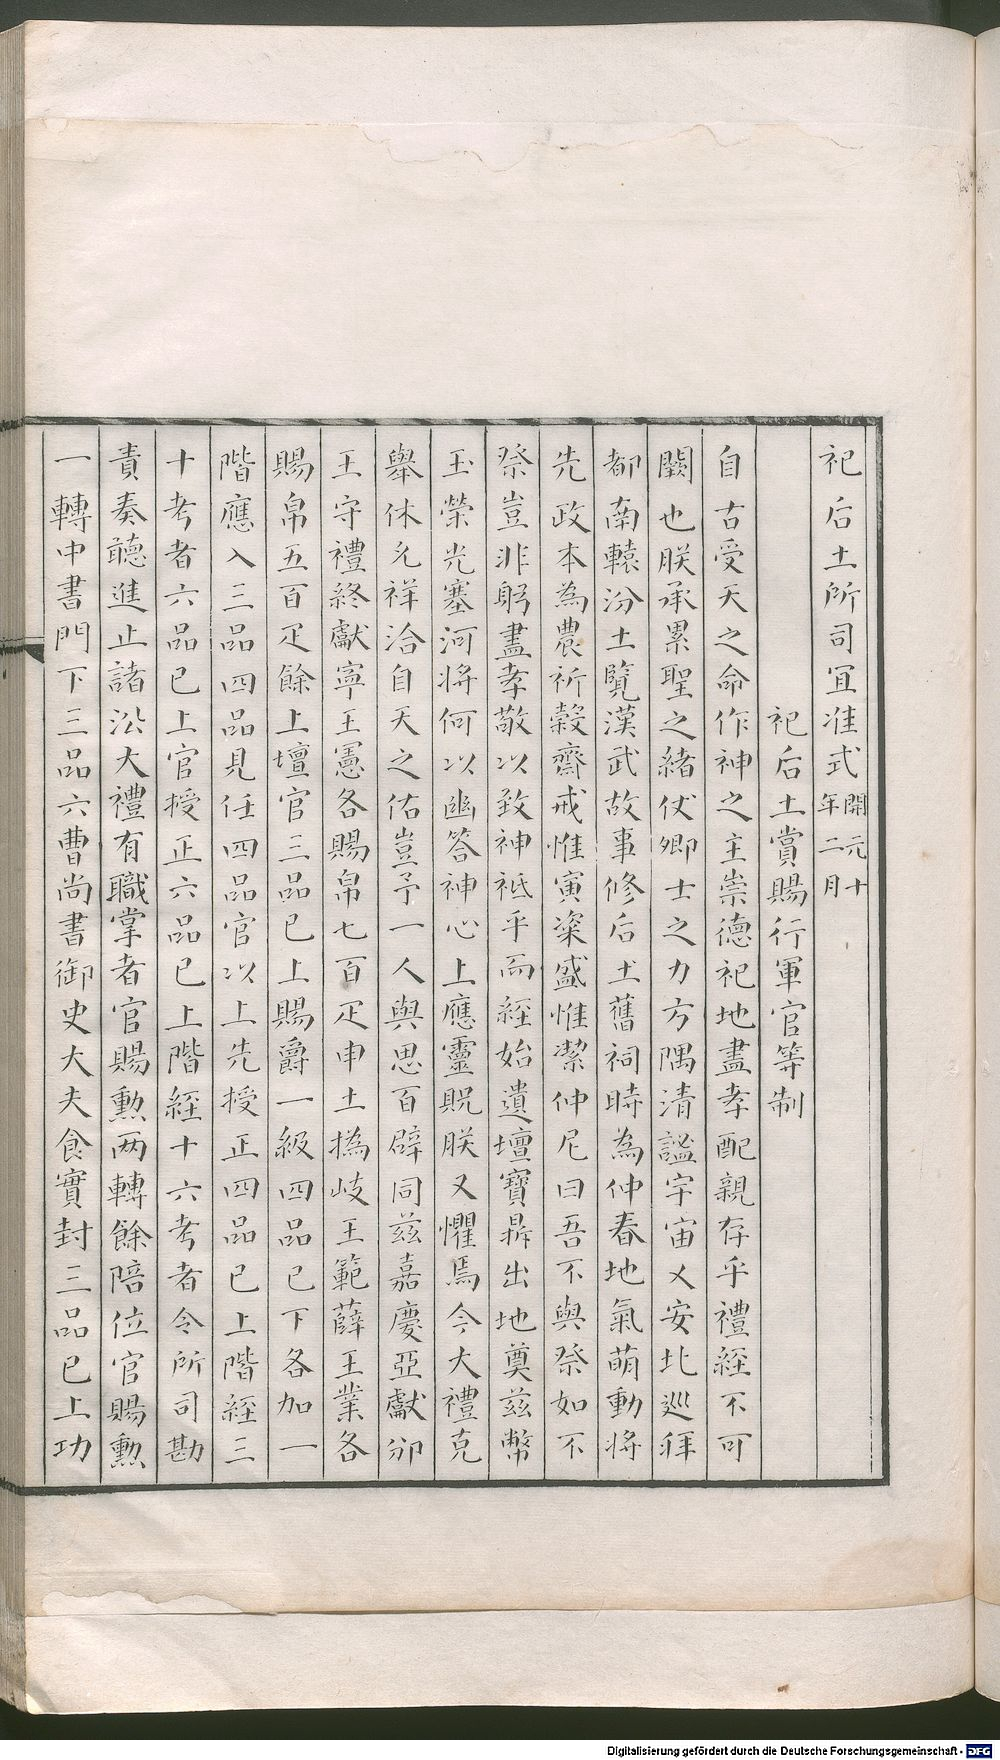 祀后土所司宜准式開元十年二月
祀后土賞賜行軍官等制
自古受天之命作神之主崇德祀地盡孝配親存乎禮經不可
闕也朕承累聖之緒仗卿士之力方隅清謐宇宙乂安北巡拜
都南轅汾土覽漢武故事修后土舊祠時為仲春地氣萌動將
先政本為農祈穀齋戒惟寅粢盛惟潔仲尼曰吾不與祭如不
祭豈非躬盡孝敬以致神祗乎而經始遺壇寶鼎出地奠茲幣
玉榮光塞河將何以幽答神心上應靈貺朕又懼焉今大禮克
舉休允祥洽自天之佑豈予一人與思百辟同茲嘉慶亞獻邠
王守禮終獻寧王憲各賜帛七百疋申土撝岐王範薛王業各
賜帛五百疋餘上壇官三品已上賜爵一級四品已下各加一
階應入三品四品見任四品官以上先授正四品已上階經三
十考者六品已上官授正六品已上階經十六考者令所司勘
責奏聽進止諸沿大禮有職掌者官賜勳兩轉餘陪位官賜勳
一轉中書門下三品六曹尚書御史大夫食實封三品已上功
Digitalisierung gefördert durch die Deutsche Forschungsgemeinschaft - DFG